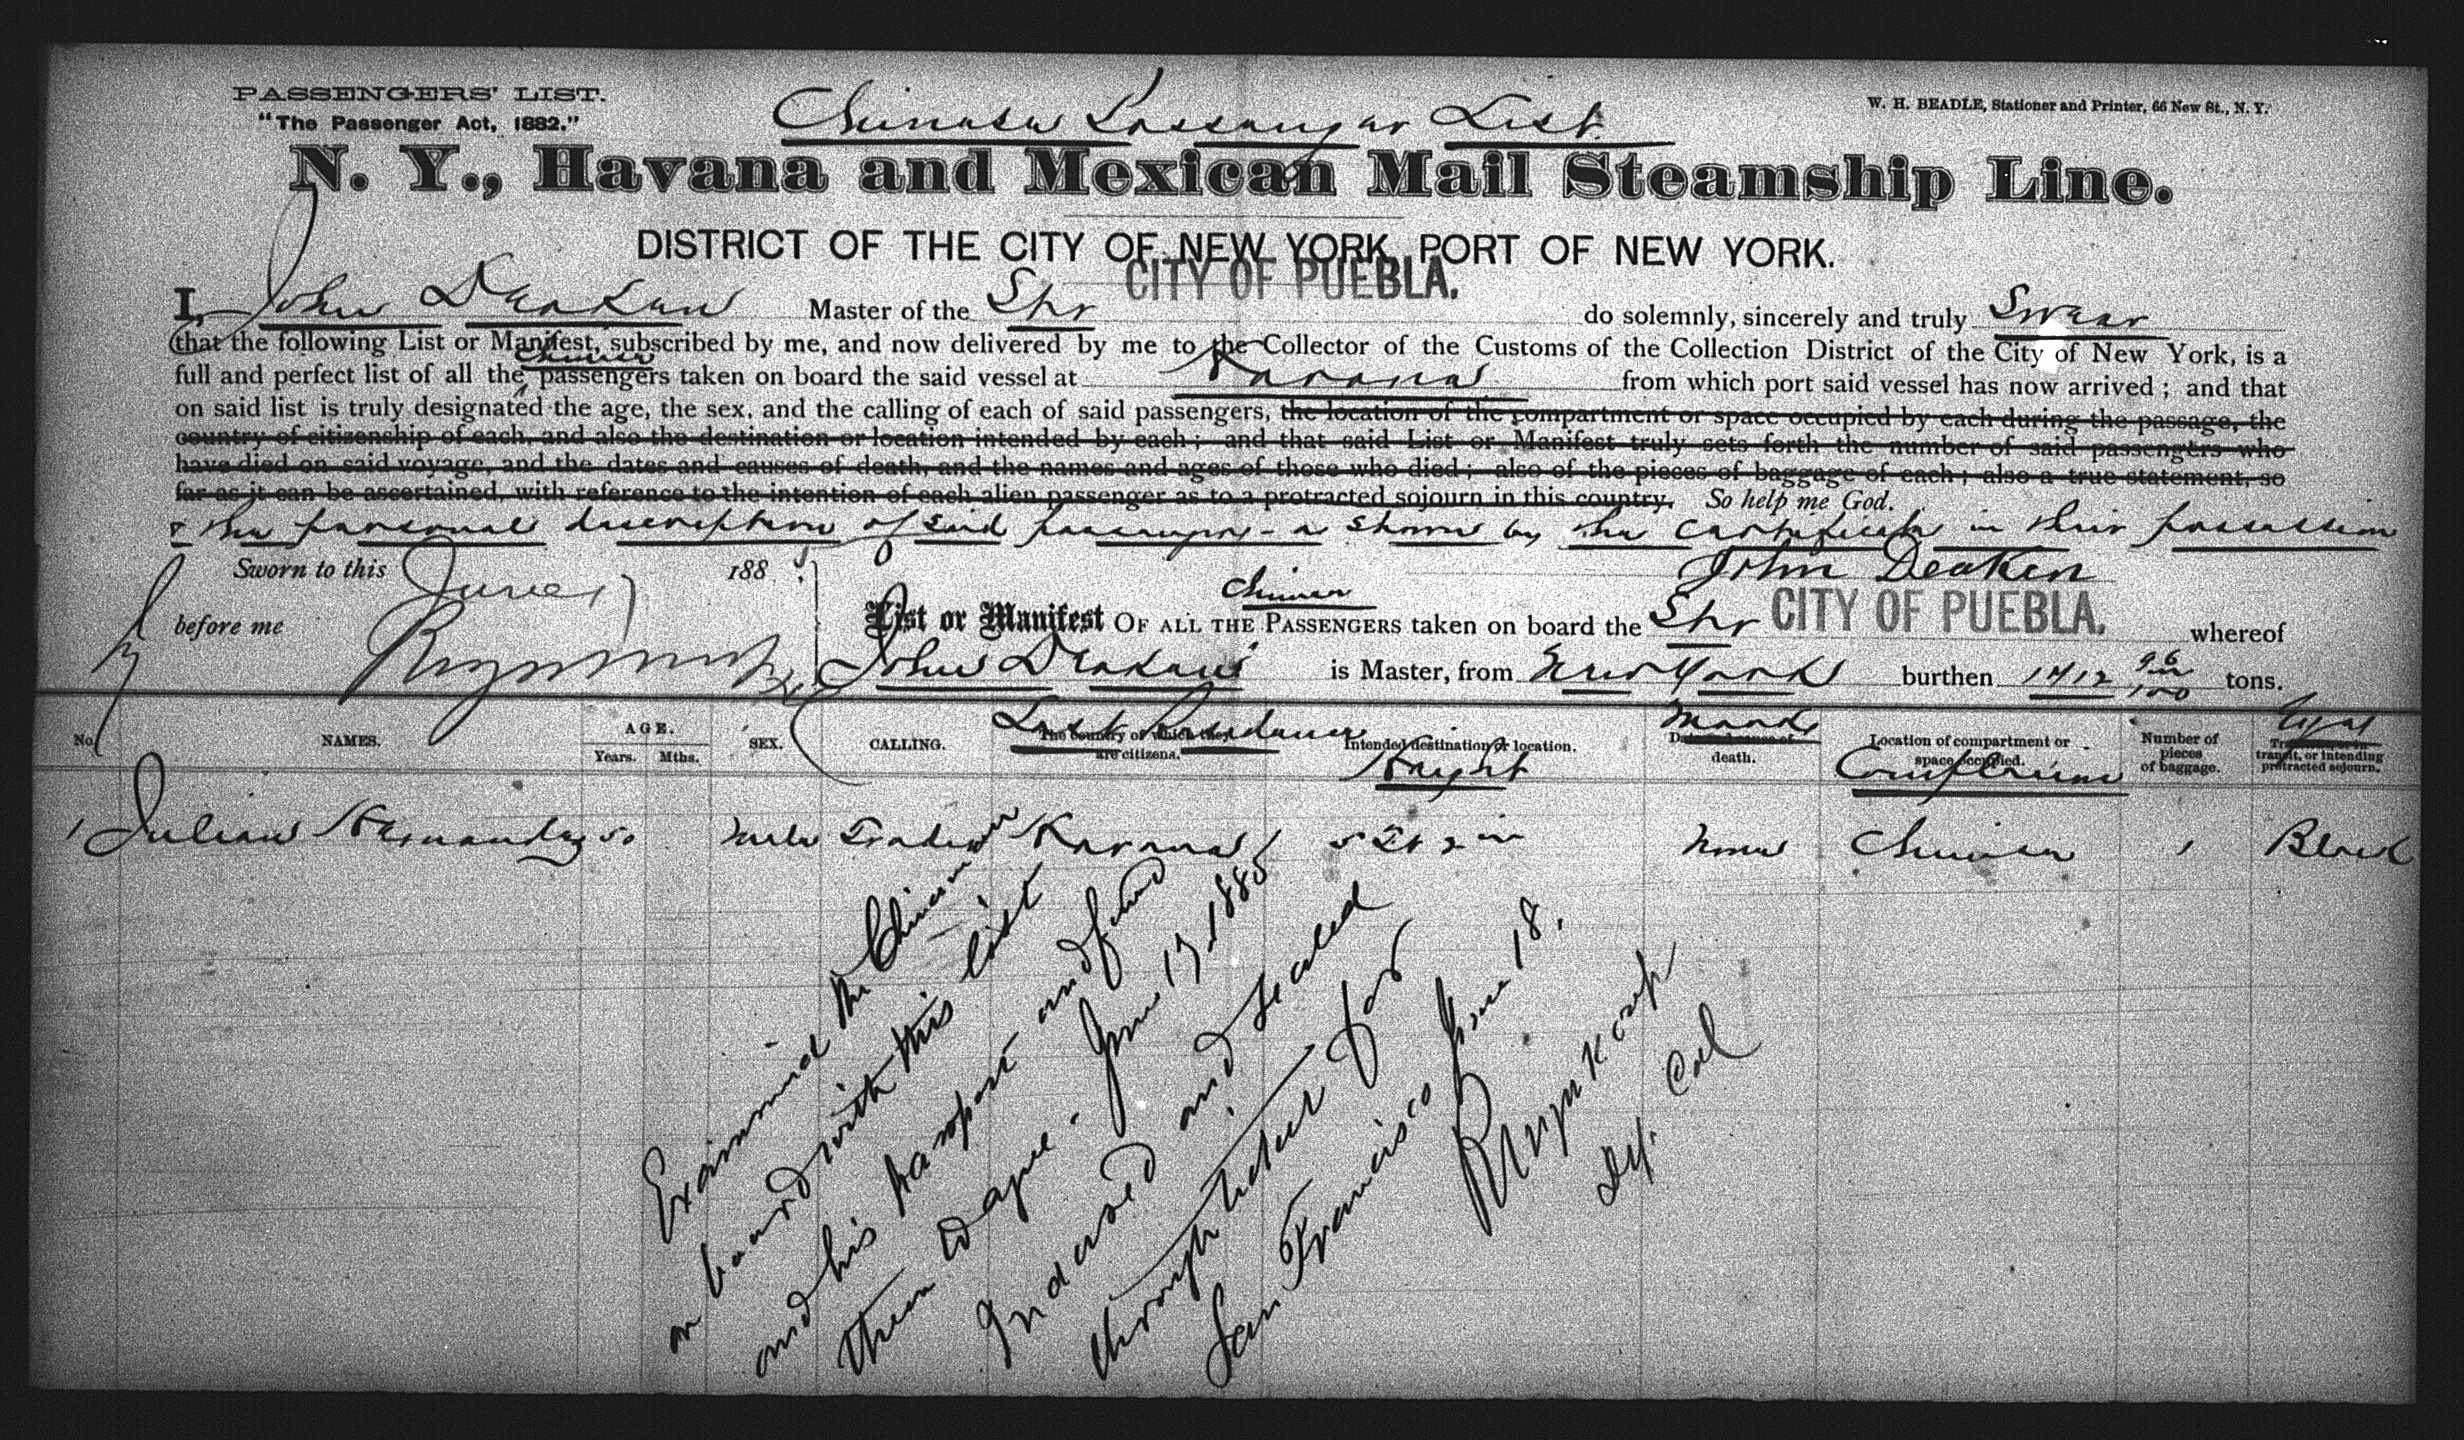 PASSENGERS' LIST.
"The Passenger Act, 1882."
Chinese Passenger List
W. H. BEADLE, Stationer and Printer, 66 New St., N. Y.
N. Y., Havana and Mexican Mail Steamship Line.
DISTRICT OF THE CITY OF NEW YORK, PORT OF NEW YORK.
I, John Deaken Master of the Shr CITY OF PUEBLA. do solemnly, sincerely and truly Swear
that the following List or Manifest, subscribed by me, and now delivered by me to the Collector of the Customs of the Collection District of the City of New York, is a
full and perfect list of all the Chinese passengers taken on board the said vessel at Havana from which port said vessel has now arrived; and that
on said list is truly designated the age, the sex, and the calling of each of said passengers, the location of the compartment or space occupied by each during the passage, the
country of citizenship of each, and also the destination or location intended by each; and that said List or Manifest truly sets forth the number of said passengers who
have died on said voyage, and the dates and causes of death, and the names and ages of those who died; also of the pieces of baggage of each; also a true statement, so
far as it can be ascertained, with reference to the intention of each alien passenger as to a protracted sojourn in this country. So help me God.
& the personal description of said passengers as shown by the certificate in their possession
Sworn to this June 17 188
John Deaken
before me
List or Manifest OF ALL THE Chinese PASSENGERS taken on board the Shr CITY OF PUEBLA. whereof
John Deaken is Master, from New York burthen 1412 96/100 tons.
No. NAMES. AGE. Years. Mths. SEX. CALLING. The country of which they are citizens. Last Residence Intended destination or location. Height death. Marks Location of compartment or space occupied. Complexion Number of pieces of baggage. transit, or intending protracted sojourn. Eyes
1 Julian Hernandez 50 Male Trader Havana 5 ft 2 in None Chinese 1 Black
Examined the Chinaman
on board with this list
and his passport and find
them to agree. June 17 1885
Indorsed and sealed
through ticket for
San Francisco June 18.
Dy. Col